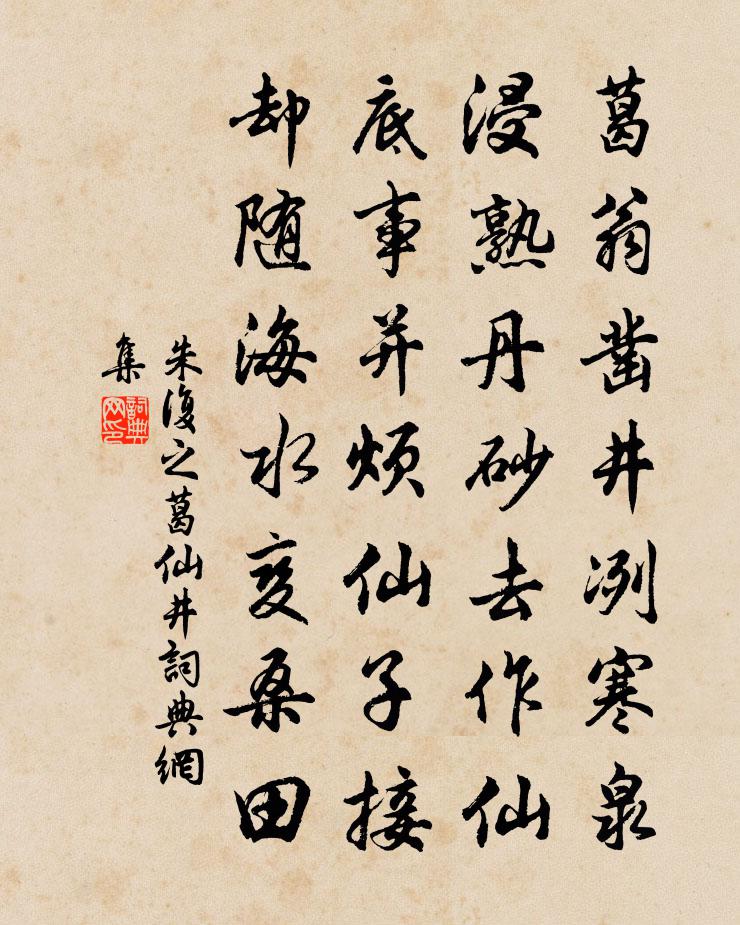 葛翁凿井冽寒泉
浸熟丹砂去作仙
底事并烦仙子接
却随海水变桑田
朱復之葛仙井詞典網
集
詞典網印